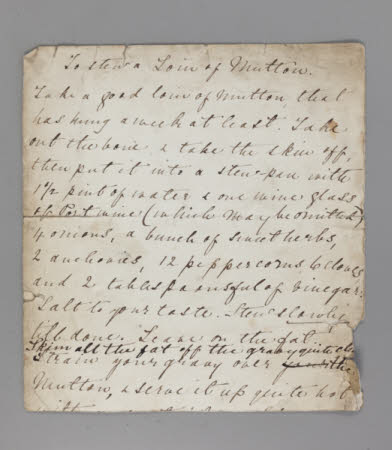 To stew a Loin of Mutton.
Take a good loin of Mutton, that
has hung a week at least. Take
out the bone & take the skin off,
then put it into a stew-pan with
1½ pint of water & one wine glass
of Port wine (which may be omitted)
4 onions, a bunch of sweet herbs,
2 anchovies, 12 peppercorns, 6 cloves
and 2 tablespoonsful of vinegar.
Salt to your taste. Stew slowly
till done. Leave on the fat.
Skim all the fat off the gravy quite
Strain your gravy over the
Mutton, & serve it up quite hot
with